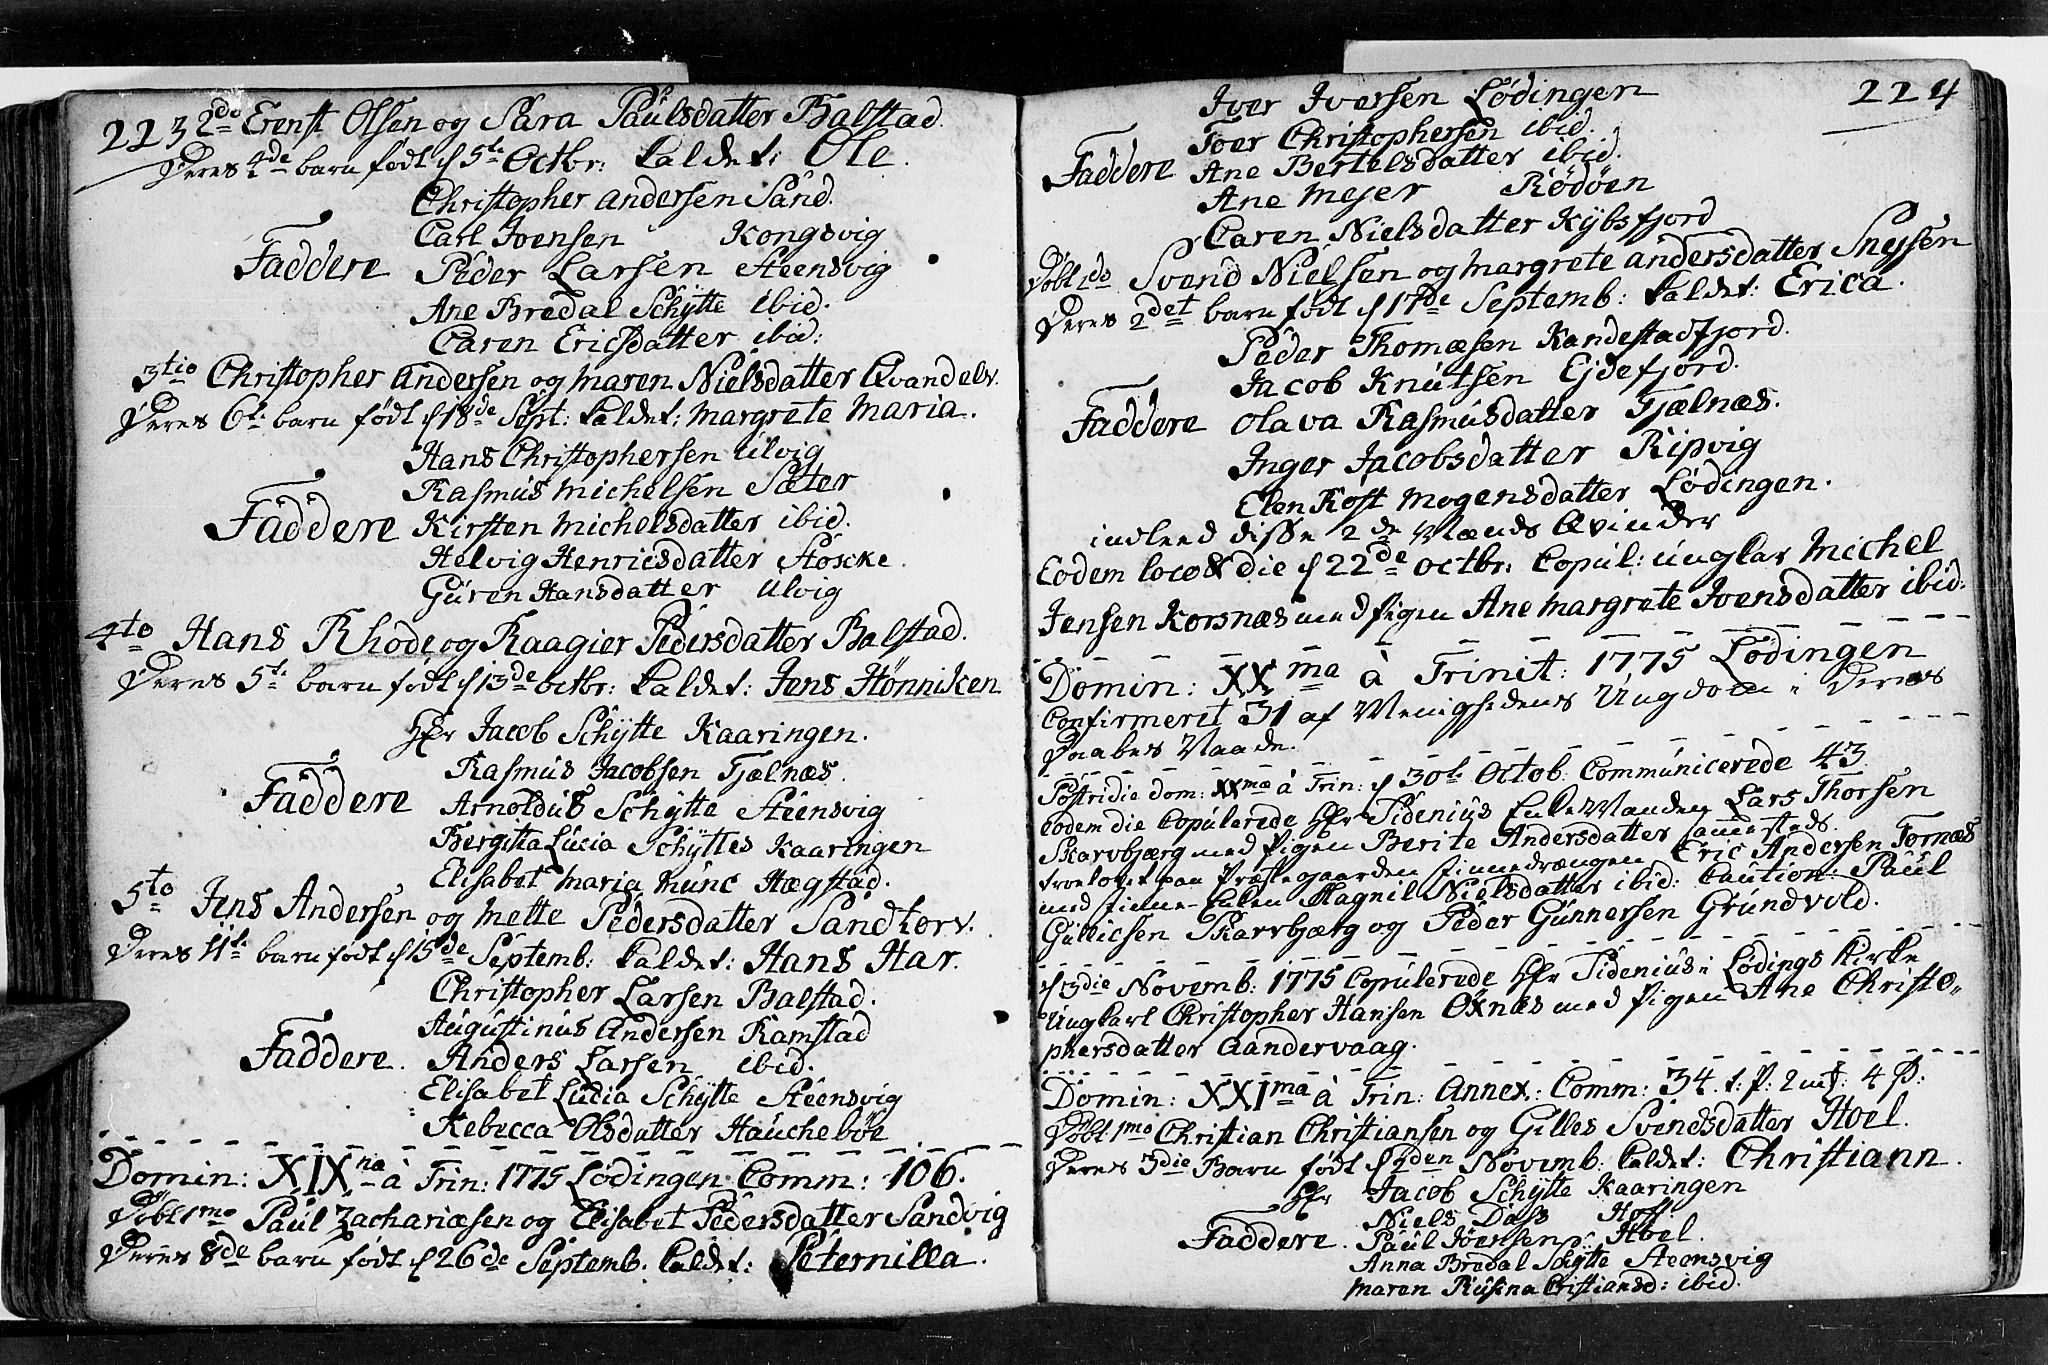 223
2do Ernst Olsen og Sara Paulsdatter Balstad.
Deres 4de barn født d 5te Octbr: kaldet: Ole.
Christopher Andersen Sand.
Carl Ivensen Kongsvig
Faddere Peder Larsen Steensvig
Ane Bredal Schÿtte ibid.
Caren Ericsdatter ibid:
3tio Christopher Andersen og Maren Nielsdatter Qvandelv.
Deres 6te barn født d 18de Sept: kaldet: Margrete Maria.
Hans Christophersen Ulvig
Rasmus Michelsen Sæter
Faddere Kirsten Michelsdatter ibid.
Helvig Henricsdatter Støscke.
Guren Hansdatter Ulvig
4to Hans Rhode og Raagier Pedersdatter Balstad.
Deres 5te barn født d 13de octbr: kaldet: Jens Hønniken
Hr Jacob Schÿtte Kaaringen.
Rasmus Jacobsen Tjælnæs.
Faddere Arnoldus Schÿtte Steensvig
Bergitta Lucia Schÿttes Kaaringen
Elisabet Maria Munc Hægstad.
5to Jens Andersen og Mette Pedersdatter Sandtorv.
Deres 4te barn født d 15de Septemb: kaldet: Hans Har.
Christopher Larsen Balstad.
Augustinus Andersen Ramstad
Faddere. Anders Larsen ibid.
Elisabet Lucia Schÿtte Steensvig
Rebecca Olsdatter Hauchebøe
Domin: XIXna à Trin: 1775 Lødingen. Comm: 106.
Døbt 1mo Paul Zachariæsen og Elisabet Pedersdatter Sandvig
Deres 8de barn født d 26de Septemb. kaldet: Peternilla.
224
Iver Iversen Lødingen
Iver Christophersen ibid.
Faddere Ane Bertelsdatter ibid.
Ane Mejer Rødøen
Caren Nielsdatter Kÿbsfjord
Døbt 2do Svend Nielsen og Margrete Andersdatter Snejsen
Deres 2det barn født d 17de Septemb: kaldet: Erica.
Peder Thomæsen Kandestadfjord.
Jacob Knutsen Ejdefjord.
Faddere Olava Rasmusdatter Tjælnæs.
Inger Jacobsdatter Ripvig
Elen Kost Mogensdatter Lødingen.
indleed disse 2de Mænds Qvinder
Eodem loco & die d 22de octbr: Copul: ungkar Michel
Jensen Korsnæs med Pigen Ane Margrete Ivensdatter ibid:
Domin: XXma à Trinit: 1775 Lødingen
Confirmeret 31 af Menighedens Ungdom i Deres
Daabes Naade.
Postridie dom: XXma à Trin: d 30te Octob: Communicerede 43
Eodem die Copulerede Hr Tidenius Enke Manden Lars Thorsen
Skarvbjærg med Pigen Berite Andersdatter sammesteds.
trovlovet paa Præstegaarden Finnedrængen Eric Andersen Fornæs
med Finne-Enken Magnil Nielsdatter ibid: Caution: Paul
Gullicsen Skarvbjærg og Peder Gunnersen Grundvold.
d 3die Novemb: 1775 Copulerede Hr Tidenius i Lødings Kirke
Ungkarl Christopher Hansen Oxnæs med Pigen Ane Christo-
phersdatter Aandervaag.
Domin: XXIma à Trin: Annex: Comm: 34. t: P: 2 mk. 4 s:
Døbt 1mo Christian Christiansen og Gilles Svendsdatter Hoel.
Deres 3die Barn født d 2den Novemb: kaldet: Christiann.
Hr Jacob Schÿtte Kaaringen
Niels Dass Hoff
Faddere. Paul Joensen Hoel.
Anna Bredal Schÿtte Steensvig
Maren Rusina Cristiansd: ibid.